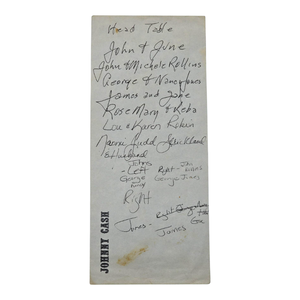 Head Table
John & June
John & Michele Rollins
George & Nancy Jones
James and Jane
Rose Mary & Reba
Lou & Karen Robin
Naomi Judd Strickland
& Husband
- Left Right -
George George Jones
Right
Jones -
James
JOHNNY CASH